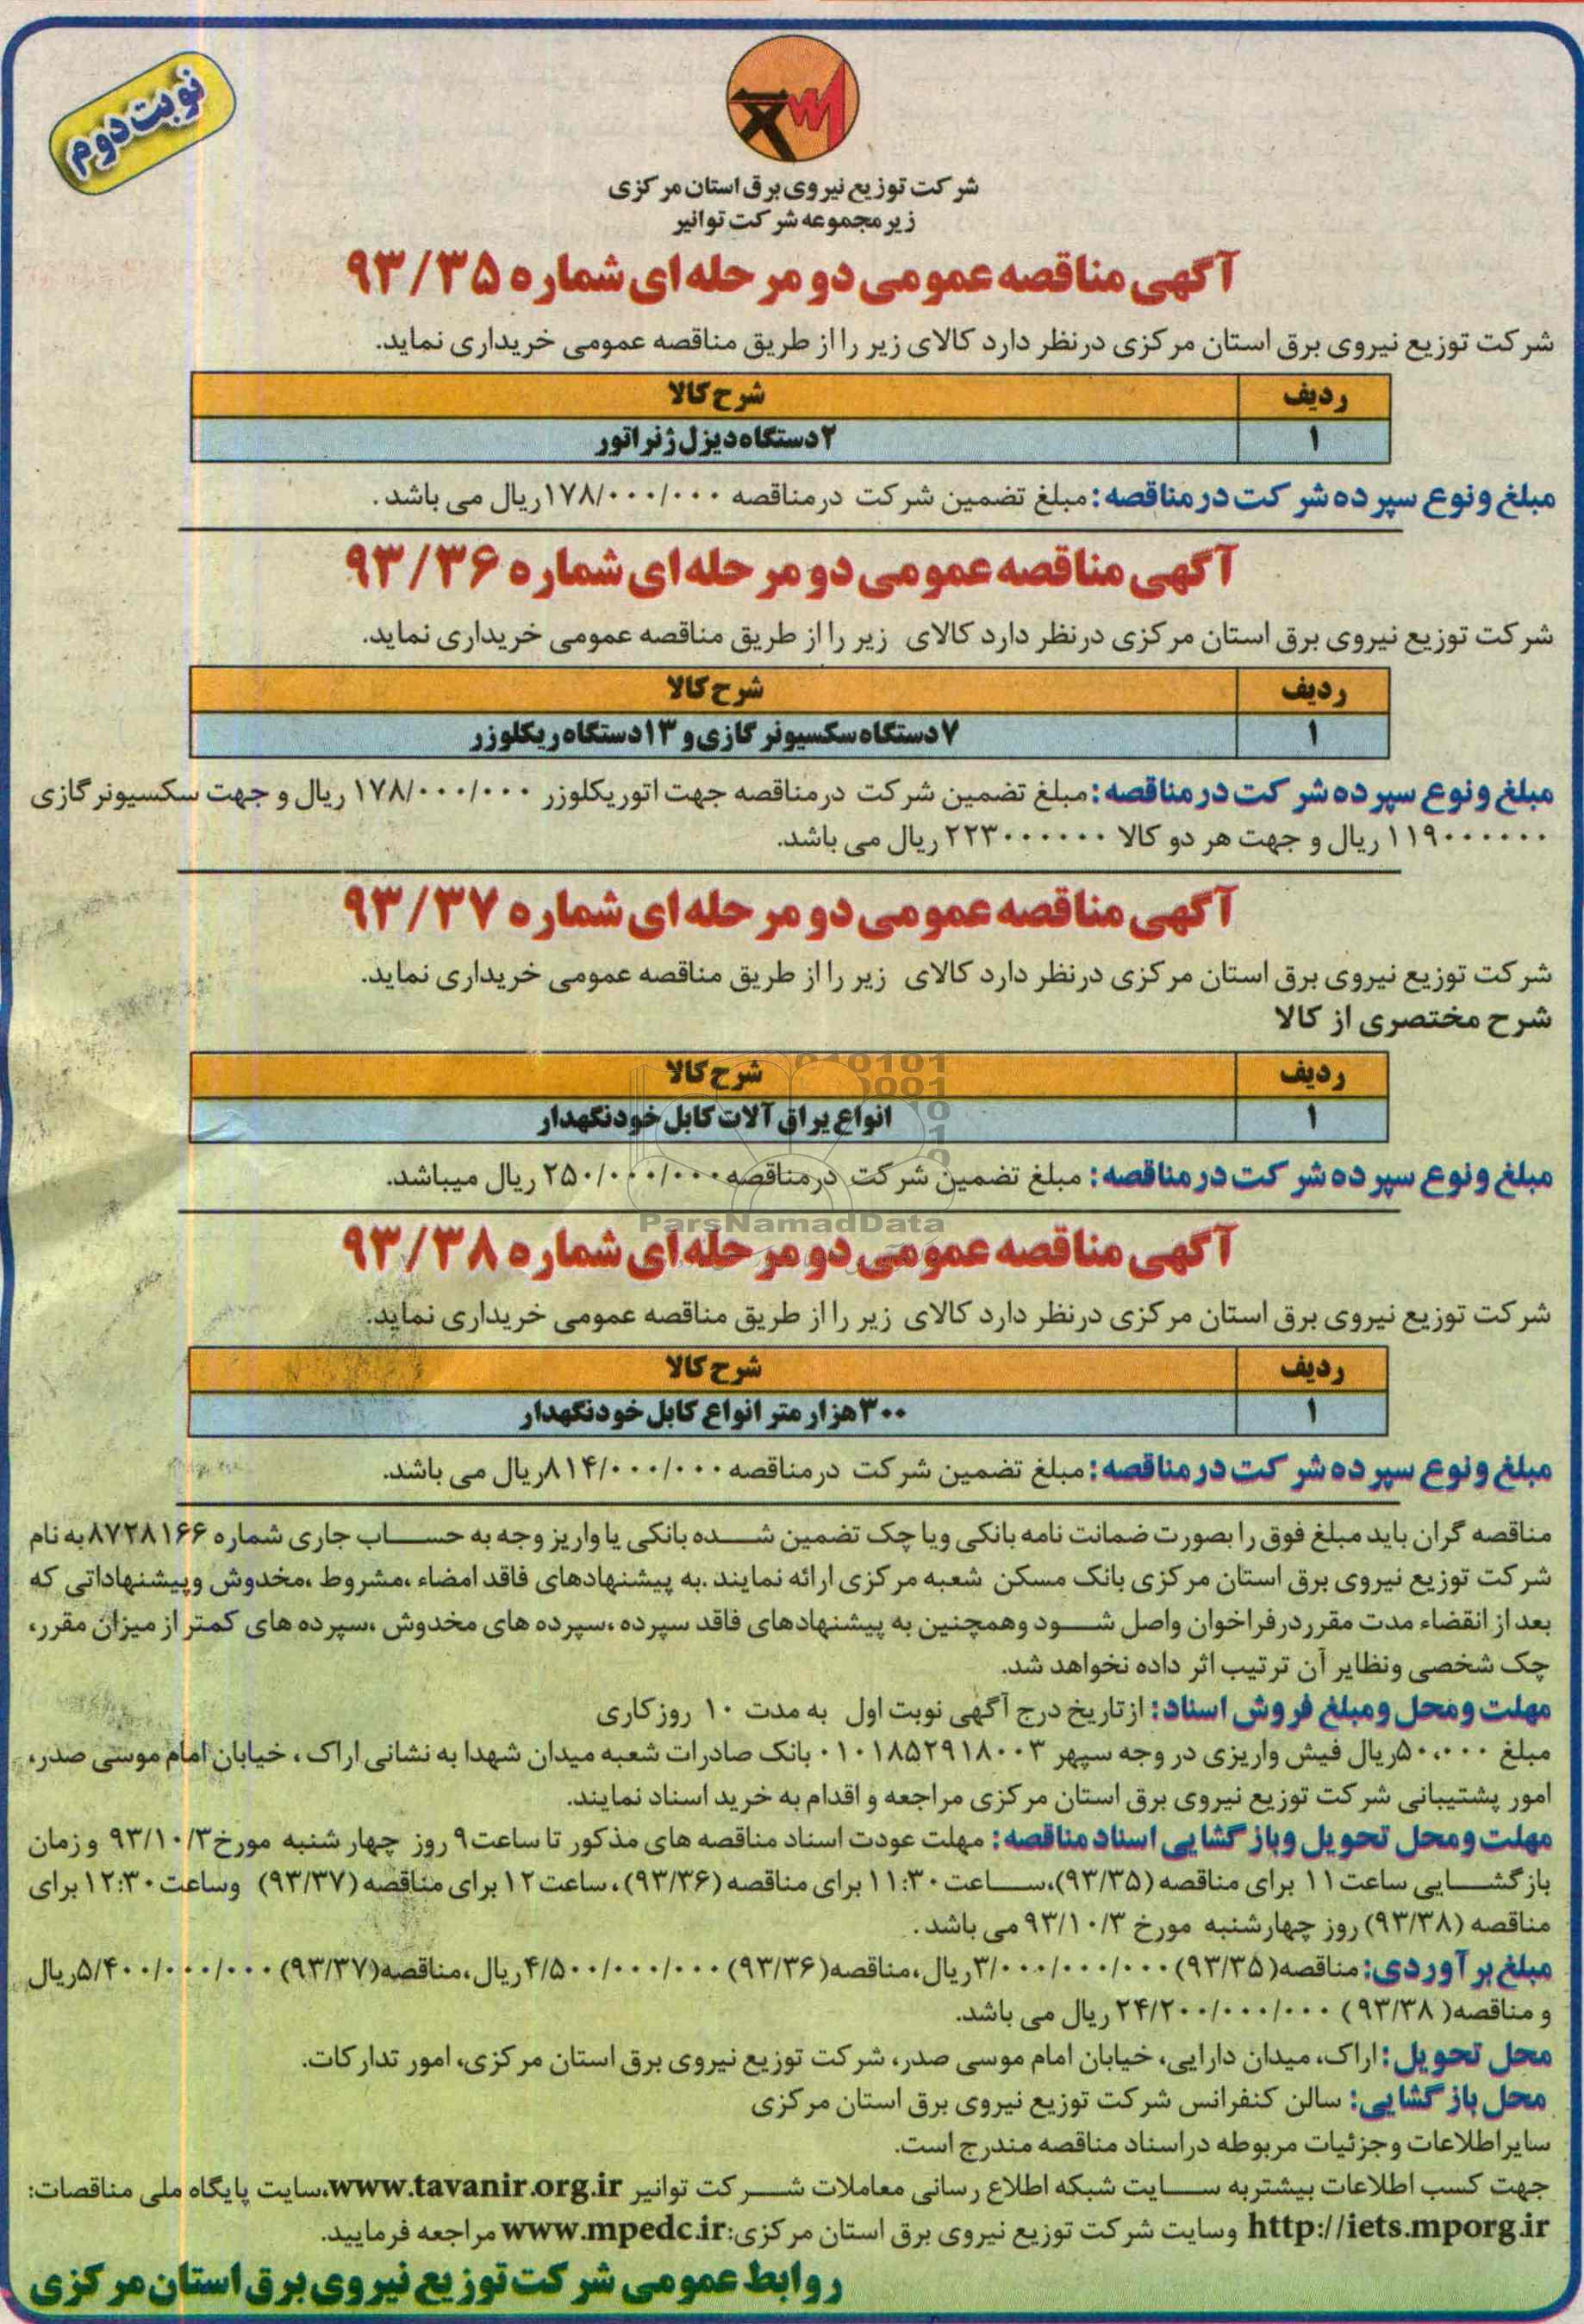 نوبت دوم
شرکت توزیع نیروی برق استان مرکزی
زیر مجموعه شرکت توانیر
آگهی مناقصه عمومی دو مرحله ای شماره ۹۳/۳۵
شرکت توزیع نیروی برق استان مرکزی درنظر دارد کالای زیر را از طریق مناقصه عمومی خریداری نماید.
ردیف شرح کالا
۱ ۲ دستگاه دیزل ژنراتور
مبلغ و نوع سپرده شرکت در مناقصه: مبلغ تضمین شرکت درمناقصه ۱۷۸/۰۰۰/۰۰۰ ریال می باشد.
آگهی مناقصه عمومی دو مرحله ای شماره ۹۳/۳۶
شرکت توزیع نیروی برق استان مرکزی درنظر دارد کالای زیر را از طریق مناقصه عمومی خریداری نماید.
ردیف شرح کالا
۱ ۷ دستگاه سکسیونر گازی و ۱۳ دستگاه ریکلوزر
مبلغ و نوع سپرده شرکت در مناقصه: مبلغ تضمین شرکت درمناقصه جهت اتوریکلوزر ۱۷۸/۰۰۰/۰۰۰ ریال و جهت سکسیونر گازی
۱۱۹۰۰۰۰۰۰ ریال و جهت هر دو کالا ۲۲۳۰۰۰۰۰۰ ریال می باشد.
آگهی مناقصه عمومی دو مرحله ای شماره ۹۳/۳۷
شرکت توزیع نیروی برق استان مرکزی درنظر دارد کالای زیر را از طریق مناقصه عمومی خریداری نماید.
شرح مختصری از کالا
ردیف شرح کالا
۱ انواع یراق آلات کابل خودنگهدار
مبلغ و نوع سپرده شرکت در مناقصه: مبلغ تضمین شرکت درمناقصه ۲۵۰/۰۰۰/۰۰۰ ریال میباشد.
ParsNamadData
آگهی مناقصه عمومی دو مرحله ای شماره ۹۳/۳۸
شرکت توزیع نیروی برق استان مرکزی درنظر دارد کالای زیر را از طریق مناقصه عمومی خریداری نماید.
ردیف شرح کالا
۱ ۳۰۰ هزار متر انواع کابل خودنگهدار
مبلغ و نوع سپرده شرکت در مناقصه: مبلغ تضمین شرکت درمناقصه ۸۱۴/۰۰۰/۰۰۰ ریال می باشد.
مناقصه گران باید مبلغ فوق را بصورت ضمانت نامه بانکی ویا چک تضمین شده بانکی یا واریز وجه به حساب جاری شماره ۸۷۲۸۱۶۶ به نام
شرکت توزیع نیروی برق استان مرکزی بانک مسکن شعبه مرکزی ارائه نمایند .به پیشنهادهای فاقد امضاء ،مشروط ،مخدوش وپیشنهاداتی که
بعد از انقضاء مدت مقرردرفراخوان واصل شود وهمچنین به پیشنهادهای فاقد سپرده ،سپرده های مخدوش ،سپرده های کمتر از میزان مقرر،
چک شخصی ونظایر آن ترتیب اثر داده نخواهد شد.
مهلت و محل و مبلغ فروش اسناد: ازتاریخ درج آگهی نوبت اول به مدت ۱۰ روزکاری
مبلغ ۵۰،۰۰۰ ریال فیش واریزی در وجه سپهر ۰۱۰۱۸۵۲۹۱۸۰۰۳ بانک صادرات شعبه میدان شهدا به نشانی اراک ، خیابان امام موسی صدر،
امور پشتیبانی شرکت توزیع نیروی برق استان مرکزی مراجعه و اقدام به خرید اسناد نمایند.
مهلت و محل تحویل و بازگشایی اسناد مناقصه: مهلت عودت اسناد مناقصه های مذکور تا ساعت ۹ روز چهار شنبه مورخ ۹۳/۱۰/۳ و زمان
بازگشایی ساعت ۱۱ برای مناقصه (۹۳/۳۵)،ساعت ۱۱:۳۰ برای مناقصه (۹۳/۳۶)، ساعت ۱۲ برای مناقصه (۹۳/۳۷) وساعت ۱۲:۳۰ برای
مناقصه (۹۳/۳۸) روز چهارشنبه مورخ ۹۳/۱۰/۳ می باشد.
مبلغ برآوردی: مناقصه(۹۳/۳۵) ۳/۰۰۰/۰۰۰/۰۰۰ ریال،مناقصه(۹۳/۳۶) ۴/۵۰۰/۰۰۰/۰۰۰ ریال،مناقصه(۹۳/۳۷) ۵/۴۰۰/۰۰۰/۰۰۰ ریال
و مناقصه(۹۳/۳۸) ۲۴/۲۰۰/۰۰۰/۰۰۰ ریال می باشد.
محل تحویل: اراک، میدان دارایی، خیابان امام موسی صدر، شرکت توزیع نیروی برق استان مرکزی، امور تدارکات.
محل بازگشایی: سالن کنفرانس شرکت توزیع نیروی برق استان مرکزی
سایراطلاعات وجزئیات مربوطه دراسناد مناقصه مندرج است.
جهت کسب اطلاعات بیشتربه سایت شبکه اطلاع رسانی معاملات شرکت توانیر www.tavanir.org.ir،سایت پایگاه ملی مناقصات:
http://iets.mporg.ir وسایت شرکت توزیع نیروی برق استان مرکزی:www.mpedc.ir مراجعه فرمایید.
روابط عمومی شرکت توزیع نیروی برق استان مرکزی